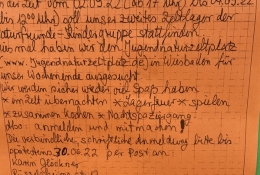 in der Zeit vom 02.09.22 (ab 17 Uhr) bis 04.09.22
(bis 12:00 Uhr) soll unser zweites Zeltlager der
Naturfreunde-Kindergruppe stattfinden.
Dieses mal haben wir den Jugendnaturzeltplatz
(www.jugendnaturzeltplatz.de) in Wiesbaden für
unser Wochenende ausgesucht.
Wir werden sicher wieder viel Spaß haben.
* im Zelt übernachten * Lagerfeuer * spielen
* zusammen kochen * Nachtspaziergang
Also: anmelden und mitmachen!
Die verbindliche, schriftliche Anmeldung bitte bis
spätestens 30.06.22 per Post an
Karin Glöckner